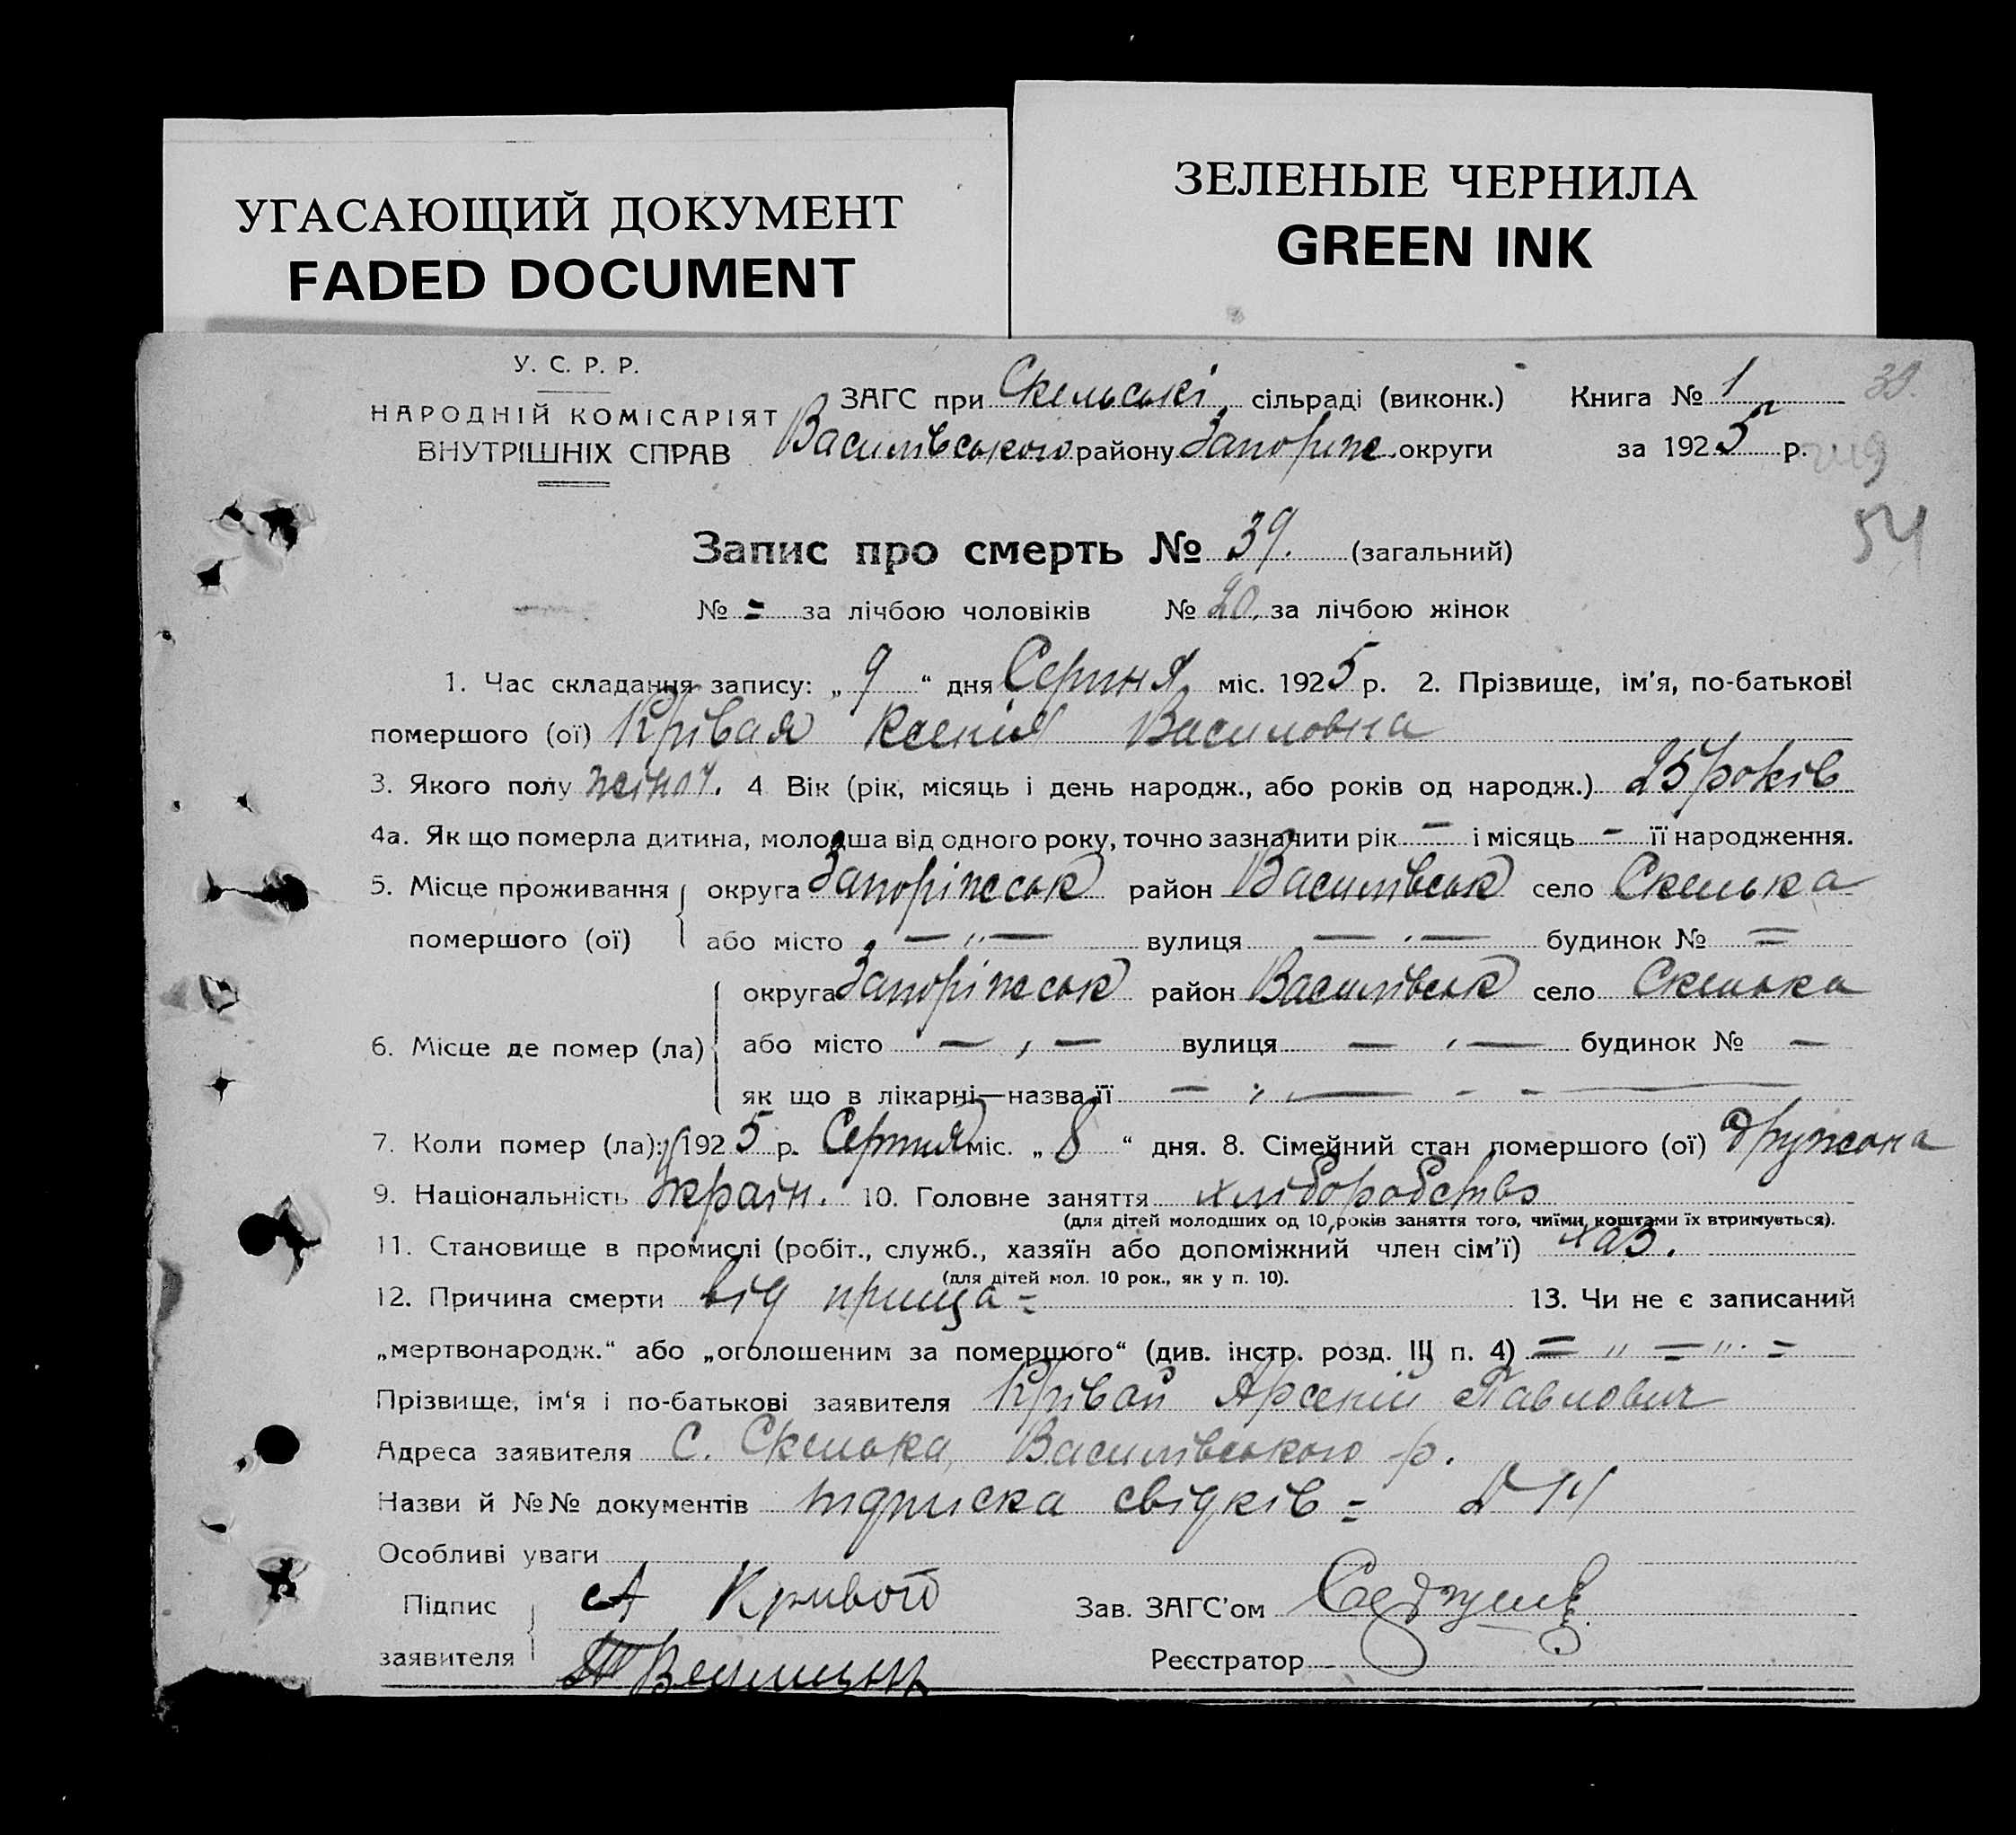 УГАСАЮЩИЙ ДОКУМЕНТ
FADED DOCUMENT
ЗЕЛЕНЫЕ ЧЕРНИЛА
GREEN INK
У. С. Р. Р.
НАРОДНІЙ КОМІСАРІЯТ
ВНУТРІШНІХ СПРАВ
ЗАГС при Скельські сільраді (виконк.) Книга № 1 39.
Василівського району Запоріж. округи за 1925 р.
54
Запис про смерть № 39. (загальний)
№ = за лічбою чоловіків № 20. за лічбою жінок
1. Час складання запису: „ 9 “ дня Серпня міс. 1925 р. 2. Прізвище, ім’я, по-батькові
помершого (ої) Крівая Ксенія Василовна
3. Якого полу жіноч. 4 Вік (рік, місяць і день народж., або років од народж.) 25 років
4а. Як що померла дитина, молодша від одного року, точно зазначити рік — і місяць - її народження.
5. Місце проживання округа Запоріжськ район Василівськ село Скелька
помершого (ої) або місто — „ — вулиця — „ — будинок № =
округа Запоріжськ район Василівськ село Скелька
6. Місце де помер (ла) або місто — , — вулиця — , — будинок № —
як що в лікарні—назва її — ; — - - —
7. Коли помер (ла): 1925 р. Серпня міс. „ 8 “ дня. 8. Сімейний стан помершого (ої) дружона
9. Національність Україн. 10. Головне заняття хліборобство
(для дітей молодших од 10 років заняття того, чиїми коштами їх втримується).
11. Становище в промислі (робіт., служб., хазяїн або допоміжний член сім’ї) хаз.
(для дітей мол. 10 рок., як у п. 10).
12. Причина смерти від прища = 13. Чи не є записаний
„мертвонародж.“ або „оголошеним за помершого“ (див. інстр. розд. III п. 4) = „ = „ =
Прізвище, ім‘я і по-батькові заявителя Крівай Арсеній Павлович
Адреса заявителя С. Скелька, Василівського р.
Назви й №№ документів підписка свідків =
Особливі уваги
Підпис А Кривой Зав. ЗАГС’ом
заявителя Реєстратор